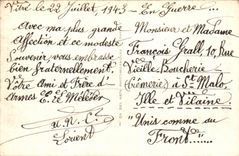 Vitré le 28 Juillet 1943 — En Guerre...
Avec ma plus grande
Affection et ce modeste
Souvenir vous embrasse
bien fraternellement.
Votre Ami et Frère d'
Armes E. E. Mélézer
U.N.C.
Lorient
Monsieur et Madame
François Yeall, 10, Rue
Vieille Boucherie
(Crèmeries) à St Malo
Ille et Vilaine
"Unis comme au
Front"